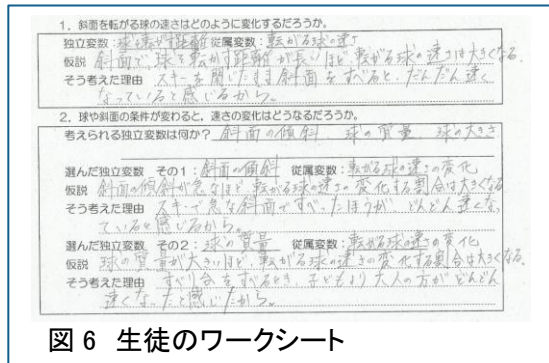 1. 斜面を転がる球の速さはどのように変化するだろうか。
独立変数:球を転がす距離 従属変数:転がる球の速さ
仮説 斜面で、球を転がす距離が長いほど、転がる球の速さは大きくなる。
そう考えた理由 スキーを閉じたまま斜面をすべると、だんだん速く
なっていると感じるから。
2. 球や斜面の条件が変わると、速さの変化はどうなるだろうか。
考えられる独立変数は何か? 斜面の傾斜、球の質量、球の大きさ
選んだ独立変数 その1:斜面の傾斜 従属変数:転がる球の速さの変化
仮説 斜面の傾斜が急なほど、転がる球の速さの変化する割合は大きくなる
そう考えた理由 スキーで急な斜面ですべったほうが、どんどん速くな
っていると感じるから。
選んだ独立変数 その2:球の質量 従属変数:転がる球の速さの変化
仮説 球の質量が大きいほど、転がる球の速さの変化する割合は大きくなる。
そう考えた理由 すべり台をすべるとき、子どもより大人の方がどんどん
速くなったと感じたから。
図6 生徒のワークシート